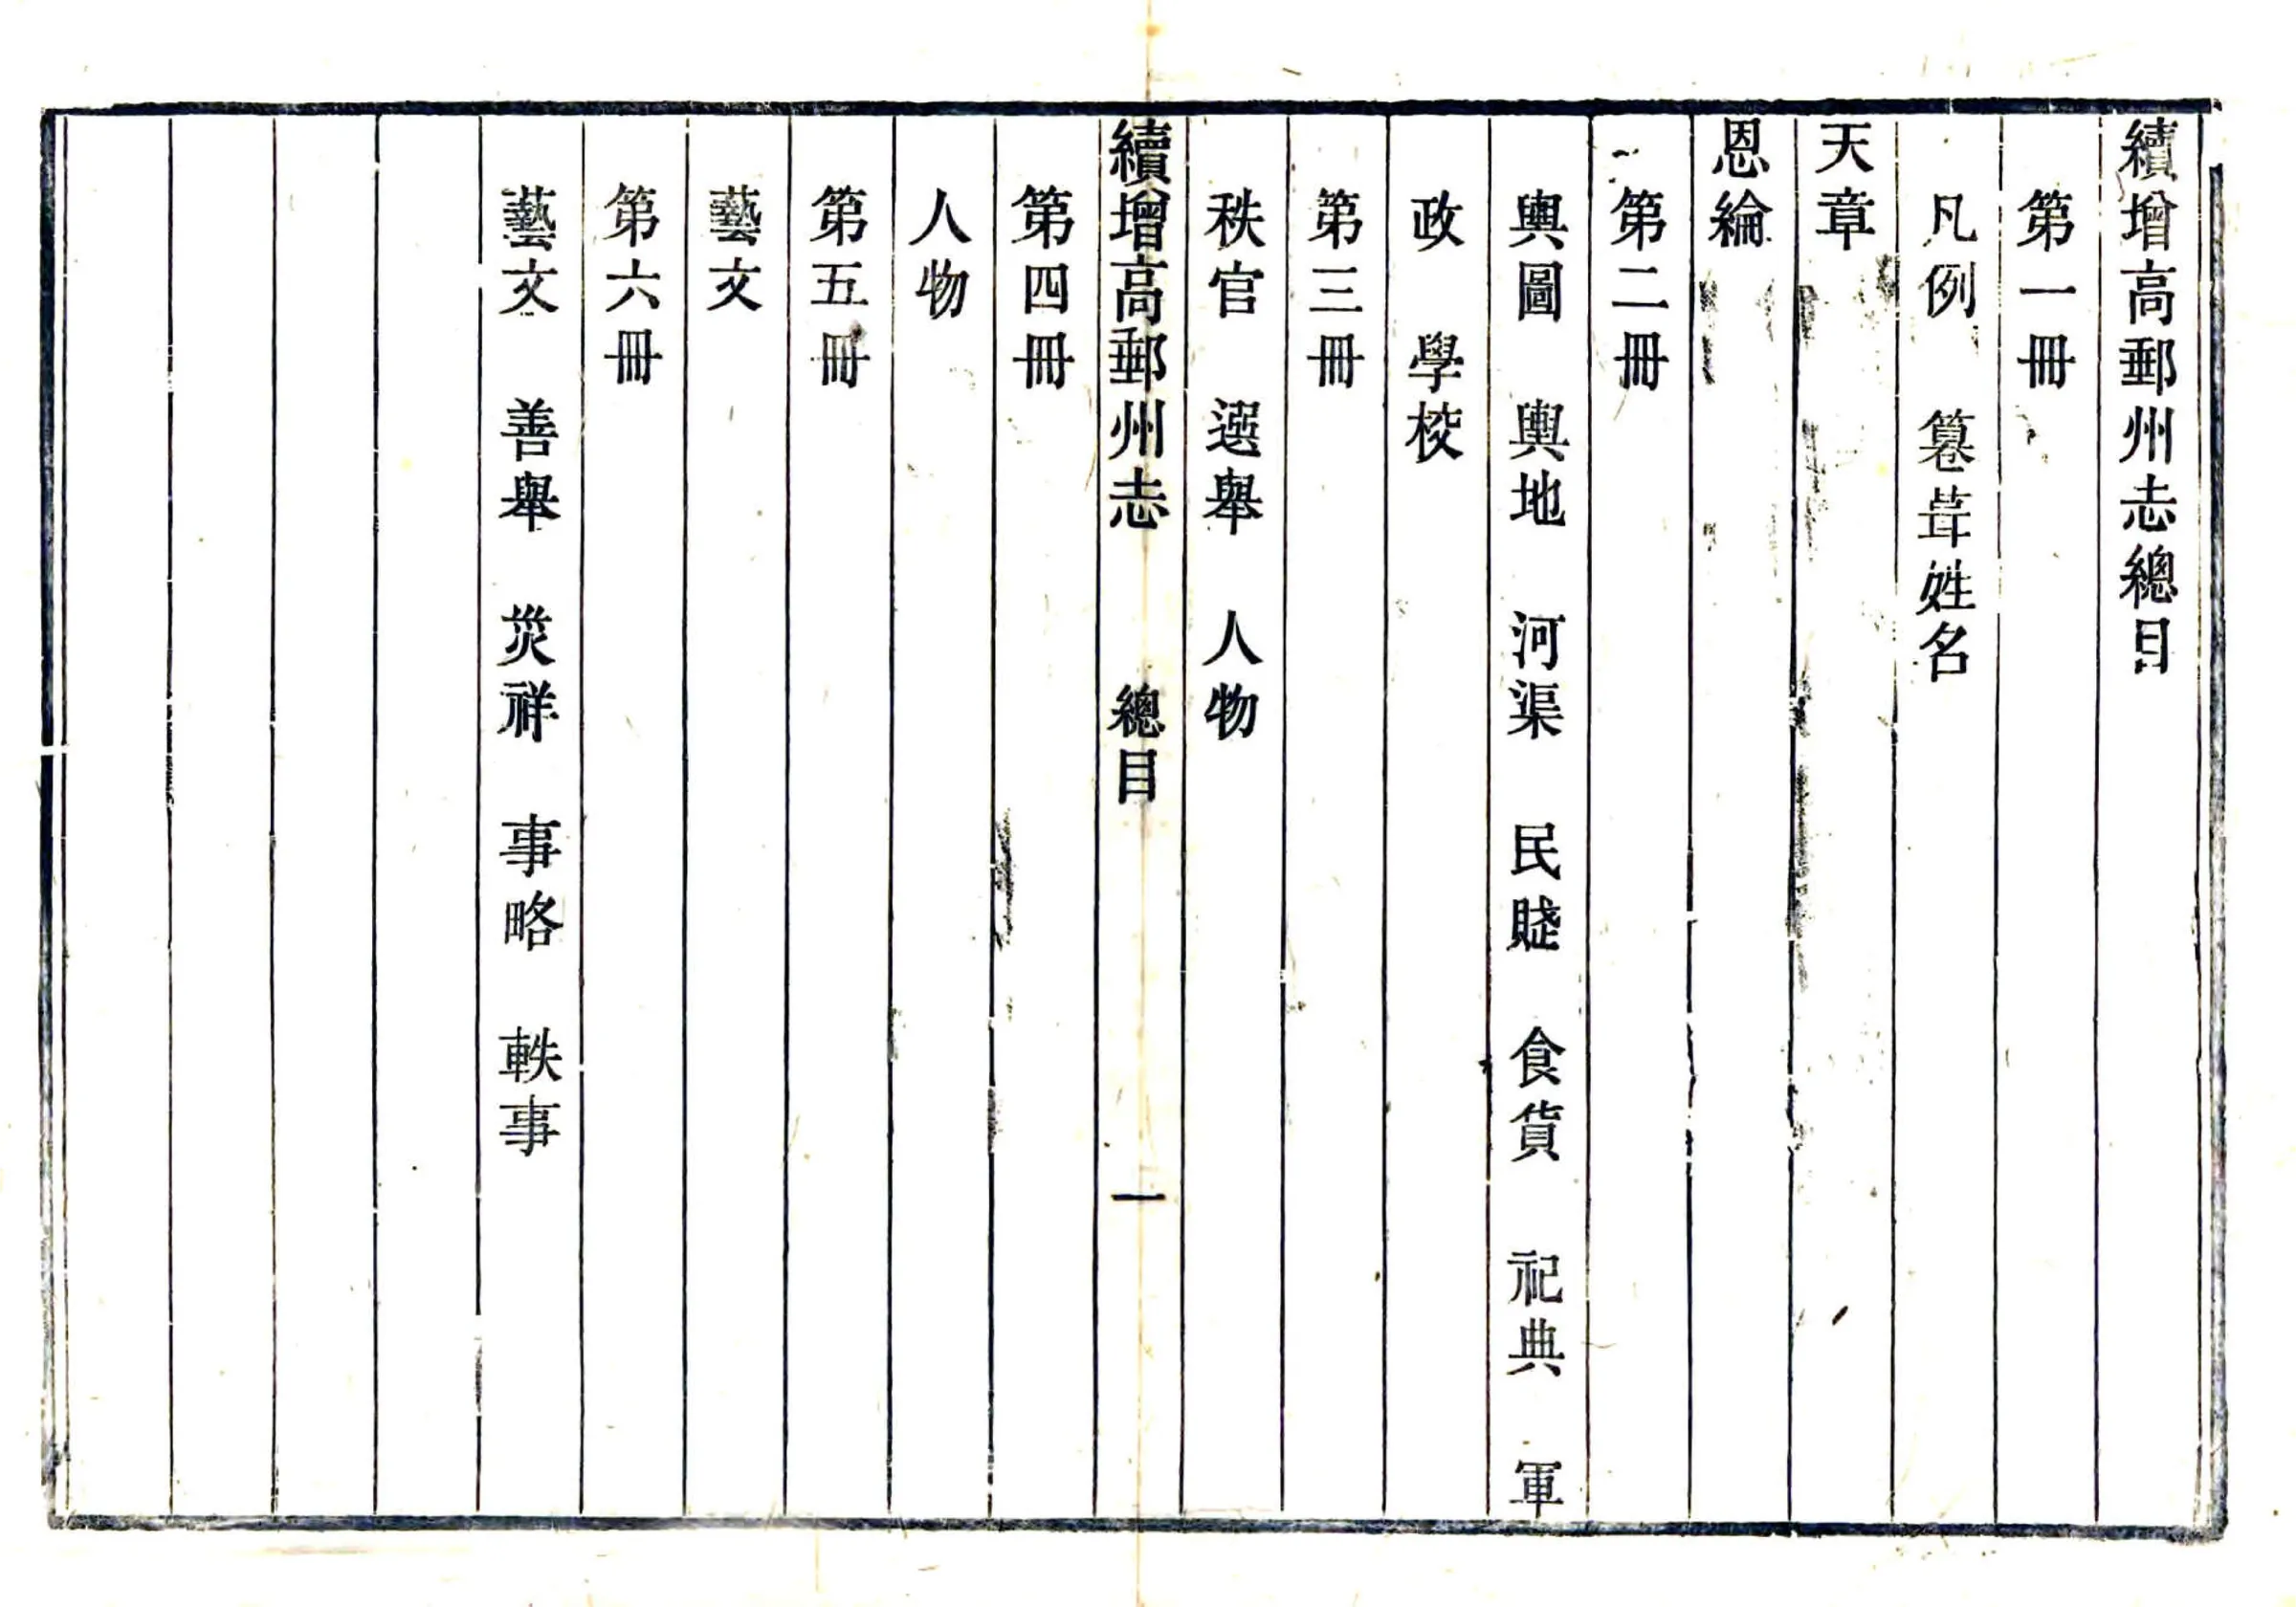 續增高郵州志總目
第一冊
凡例 篹葺姓名
天章
恩綸
第二冊
輿圖 輿地 河渠 民賦 食貨 祀典 軍
政 學校
第三冊
秩官 選舉 人物
續增高郵州志 總目 一
第四冊
人物
第五冊
藝文
第六冊
藝文 善舉 災祥 事略 軼事